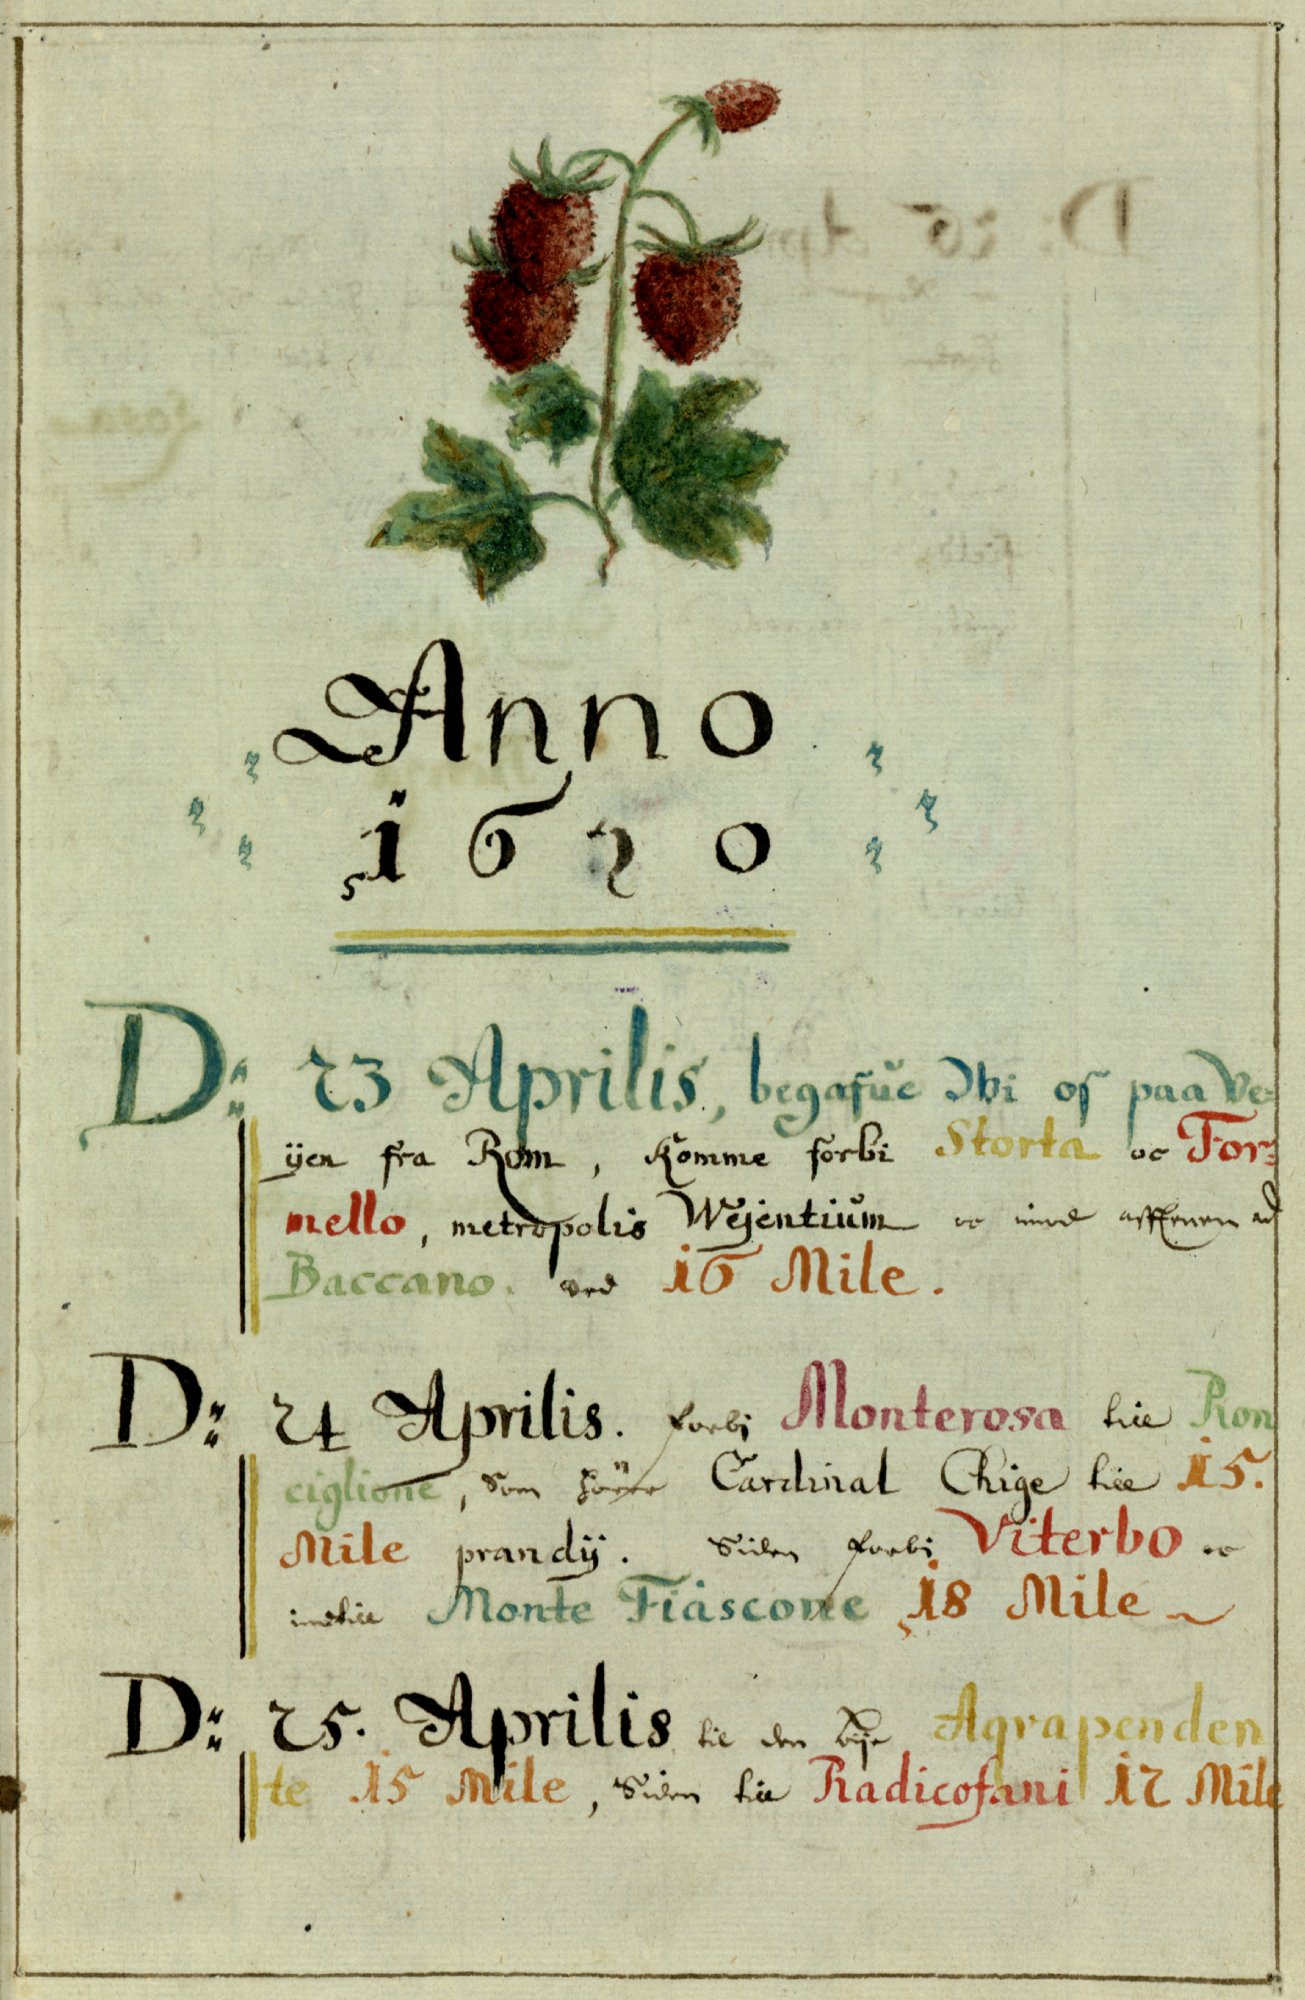 Anno
1670
D: 23 Aprilis, begafüe Wi os paa Ve=
ÿen fra Rom, Komme forbi Storta oc For=
mello, metropolis Wejentiüm oc imod afftenen ad
Baccano. ved 16 Mile.
D: 24 Aprilis. forbi Monterosa till Ron
ciglione, som hører Cardinal Chige till 15.
Mile prandÿ. Siden forbi Viterbo oc
indtill Monte Fiascone 18 Mile
D: 25. Aprilis til den bÿe Aqrapenden
te 15 Mile, Siden till Radicofani 12 Mile